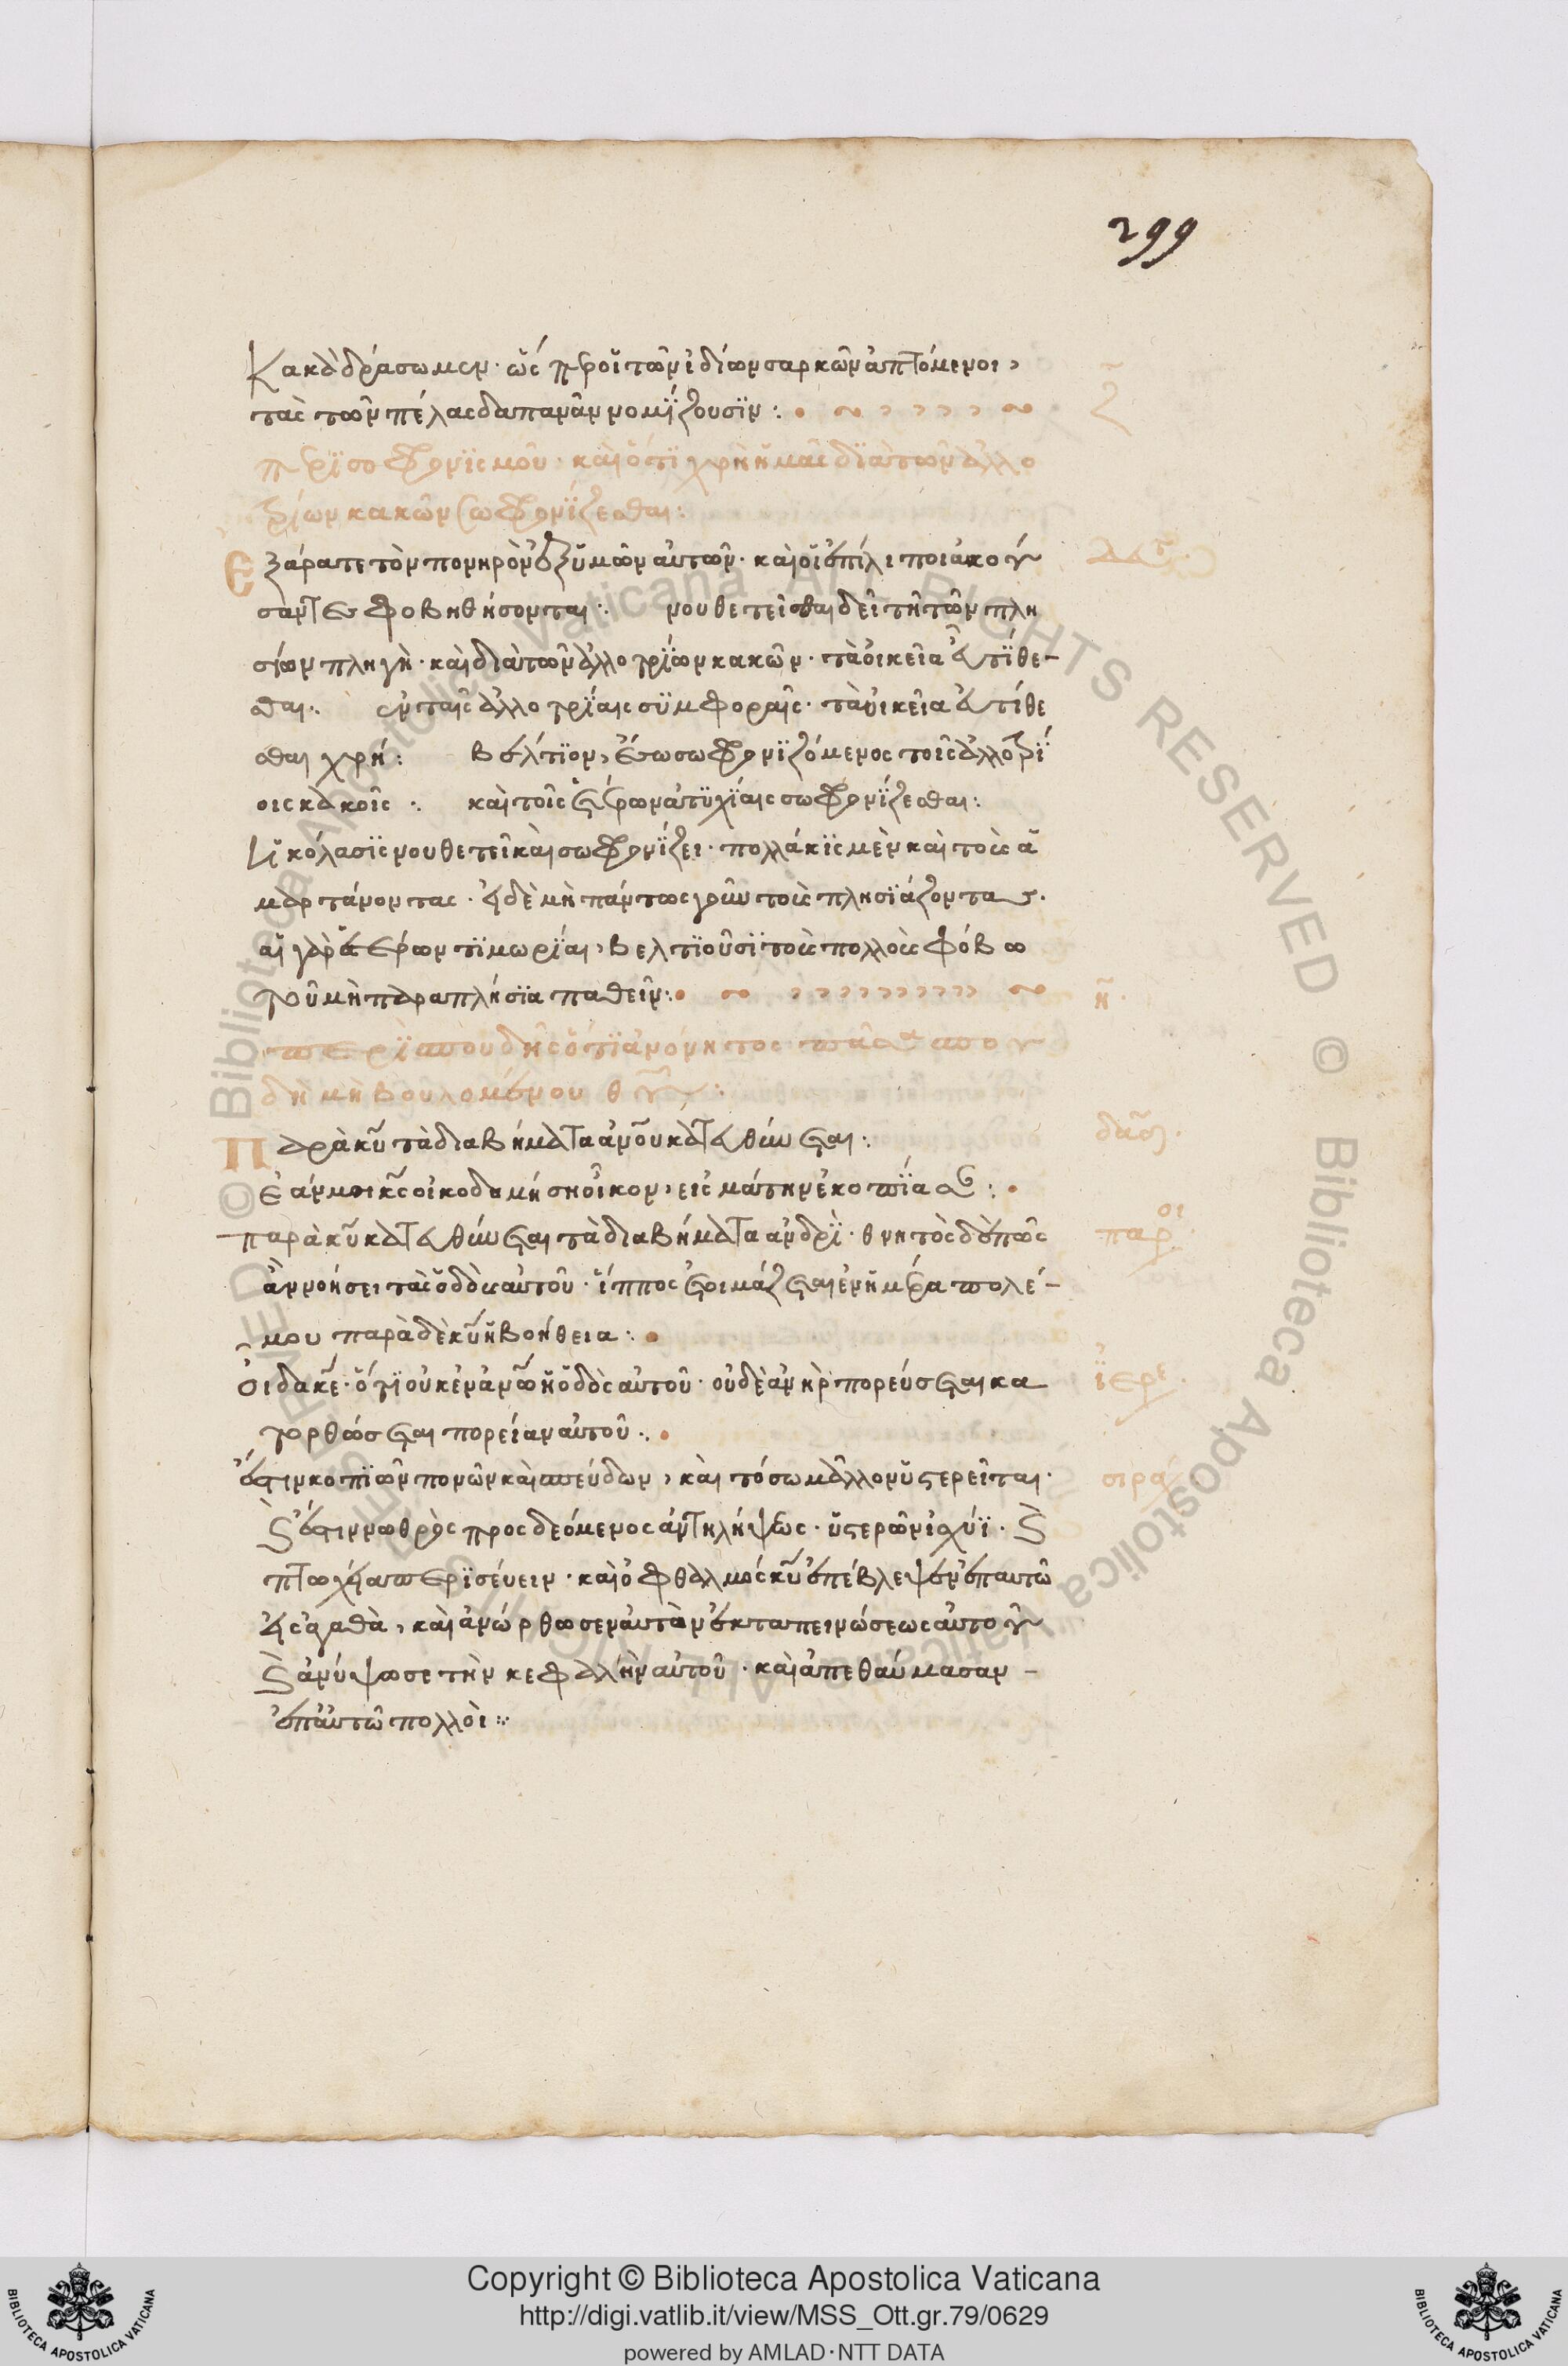 299
Κακὰ δράσωμεν· ὥσπερ οἱ τῶν ἰδίων σαρκῶν ἁπτόμενοι,
τὰς τῶν πέλας δαπανᾶν νομίζουσϊν:
ζ
περὶ σοφρονϊσμοῦ· καὶ ὅτι χρὴ ἡμᾶς διὰ τῶν ἀλλο
τρίων κακῶν σωφρονΐζεσθαι:
Ἐξάρατε τὸν πονηρὸν ἐξ ὑμῶν αὐτῶν· καὶ οἱ ἐπίλοιποι ἀκού
σαντες φοβηθήσονται: νουθετεῖσθαι δεῖ τῇ τῶν πλη
σίων πληγῇ· καὶ διὰ τῶν ἀλλοτρΐων κακῶν· τὰ οἰκεῖα εὖ τΐθε-
σθαι: ἐν ταῖς ἀλλοτρΐαις συμφοραῖς· τὰ οἰκεῖα εὖ τίθε
σθαι χρή: βέλτϊον, ἔστω σωφρονϊζόμενος τοῖς ἀλλοτρΐ
οις κακοῖς: καὶ τοῖς ἑτέρων ἀτυχΐαις σωφρονΐζεσθαι:
Ἡ κόλασϊς νουθετεῖ καὶ σωφρονΐζει· πολλάκϊς μὲν καὶ τοὺς ἁ
μαρτάνοντας· εἰ δὲ μὴ πάντως γοῦν τοὺς πλησϊάζοντας·
αἱ γὰρ ἑτέρων τϊμωρΐαι, βελτϊοῦσϊ τοὺς πολλοὺς φόβω
τοῦ μὴ παραπλήσϊα παθεῖν:
η
περὶ σπουδῆς ὅτϊ ἀνόνητος πᾶσα σπου
δὴ μὴ βουλομένου θυ:
Παρὰ κυ τὰ διαβήματα ἀνου κατευθύνεται:
δαδ
Ἐὰν μὴ κς οἰκοδομήση οἶκον, εἰς μάτην ἐκοπΐασαν:
παρὰ κυ κατευθύνεται τὰ διαβήματα ἀνδρΐ· θνητὸς δὲ πῶς
παροι
ἂν νοήσει τὰς ὁδοὺς αὐτοῦ· ἵππος ἑτοιμάζεται ἐν ἡμέρα πολέ-
μου παρὰ δὲ κυ ἡ βοήθεια:
Οἶδα κε· ὅτϊ οὐκ ἐν ἀνω ἡ ὁδὸς αὐτοῦ· οὐδὲ ἀνὴρ πορεύσεται κα
ϊερε
τορθώσεται πορείαν αὐτοῦ:
ἔστιν κοπϊῶν πονῶν καὶ σπεύδων, καὶ τόσω μᾶλλον ὑστερεῖται·
σιρα
καὶ ἔστιν νωθρὸς προσδεόμενος ἀντηλήψεως· ὑστερῶν ἰσχύϊ· καὶ
πτωχεία περϊσεύειν· καὶ ὁ φθαλμός κυ ἐπέβλεψεν ἐπ αὐτῶ
εἰς ἀγαθὰ, καὶ ἀνώρθωσεν αὐτὸν ἐκ ταπεινώσεως αὐτοῦ
καὶ ἀνύψωσε τὴν κεφαλὴν αὐτοῦ· καὶ ἀπεθαύμασαν-
ἐπ αὐτῶ πολλοὶ:
Copyright © Biblioteca Apostolica Vaticana
http://digi.vatlib.it/view/MSS_Ott.gr.79/0629
powered by AMLAD·NTT DATA